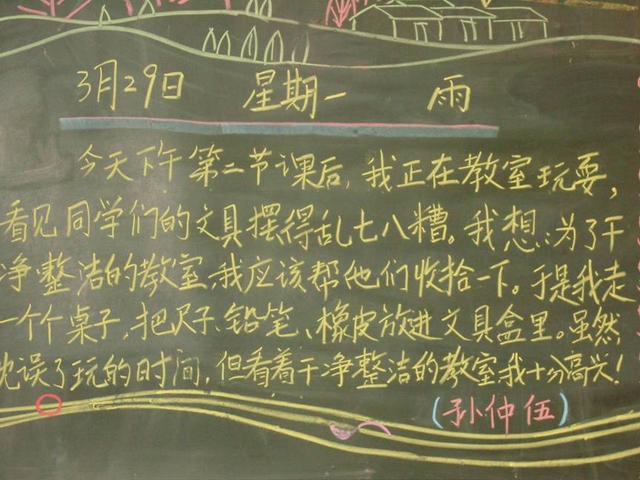 3月29日 星期一 雨
今天下午第二节课后,我正在教室玩耍,
看见同学们的文具摆得乱七八糟。我想:为了干
净整洁的教室,我应该帮他们收拾一下。于是我走
一个个桌子,把尺子、铅笔、橡皮放进文具盒里。虽然
耽误了玩的时间,但看着干净整洁的教室我十分高兴!
(孙仲伍)